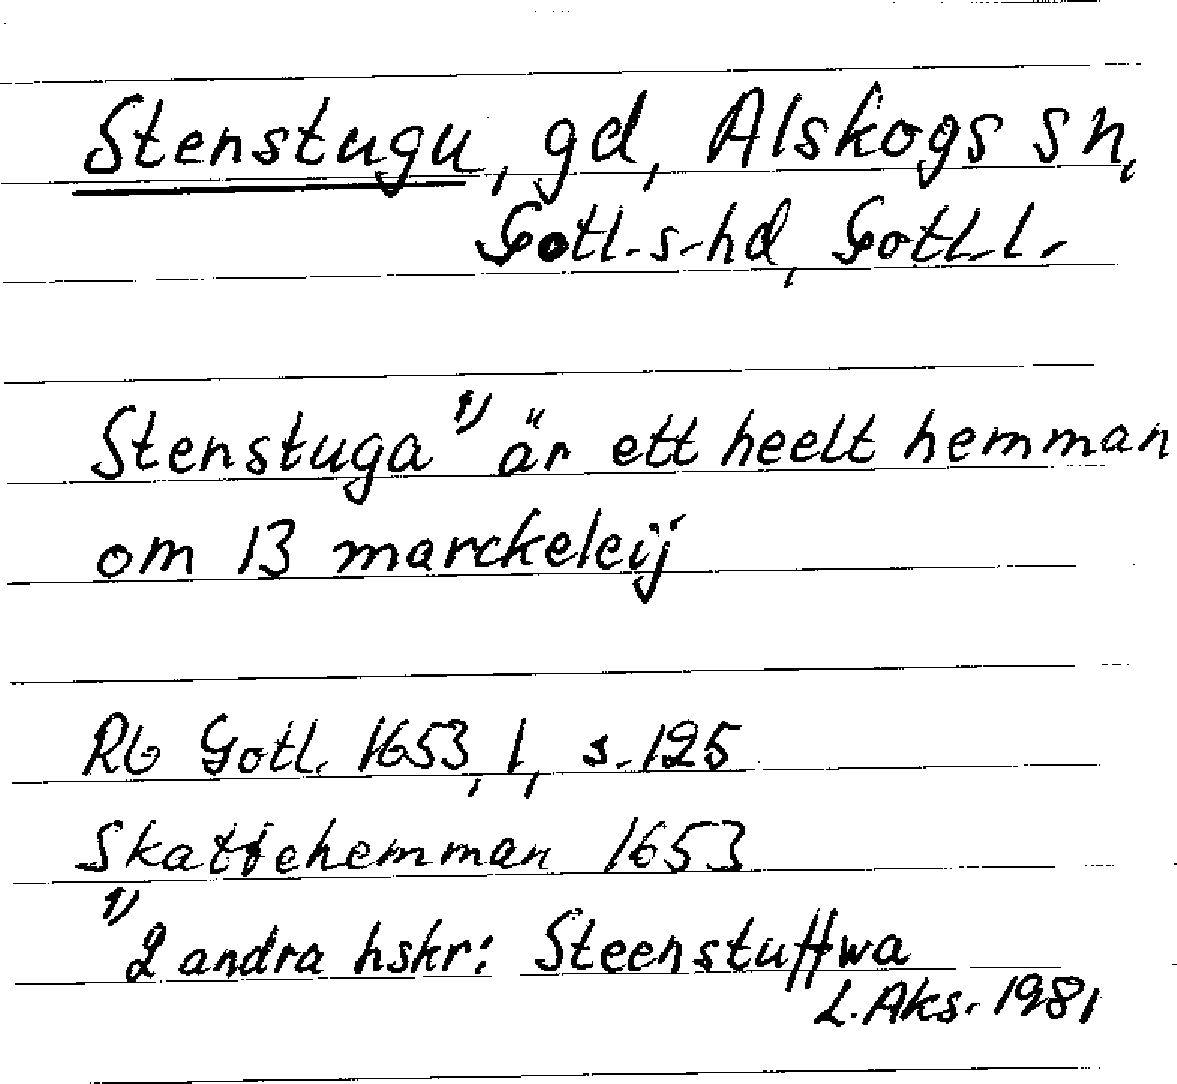 Stenstugu, gd, Alskogs sn,
Gotl. s. hd, Gotl. l.
Stenstuga 1) är ett heelt hemman
om 13 marckeleij
Rb Gotl. 1653, 1, s. 125
Skattehemman 1653
1) 2 andra hskr: Steenstuffwa
L. Aks. 1981